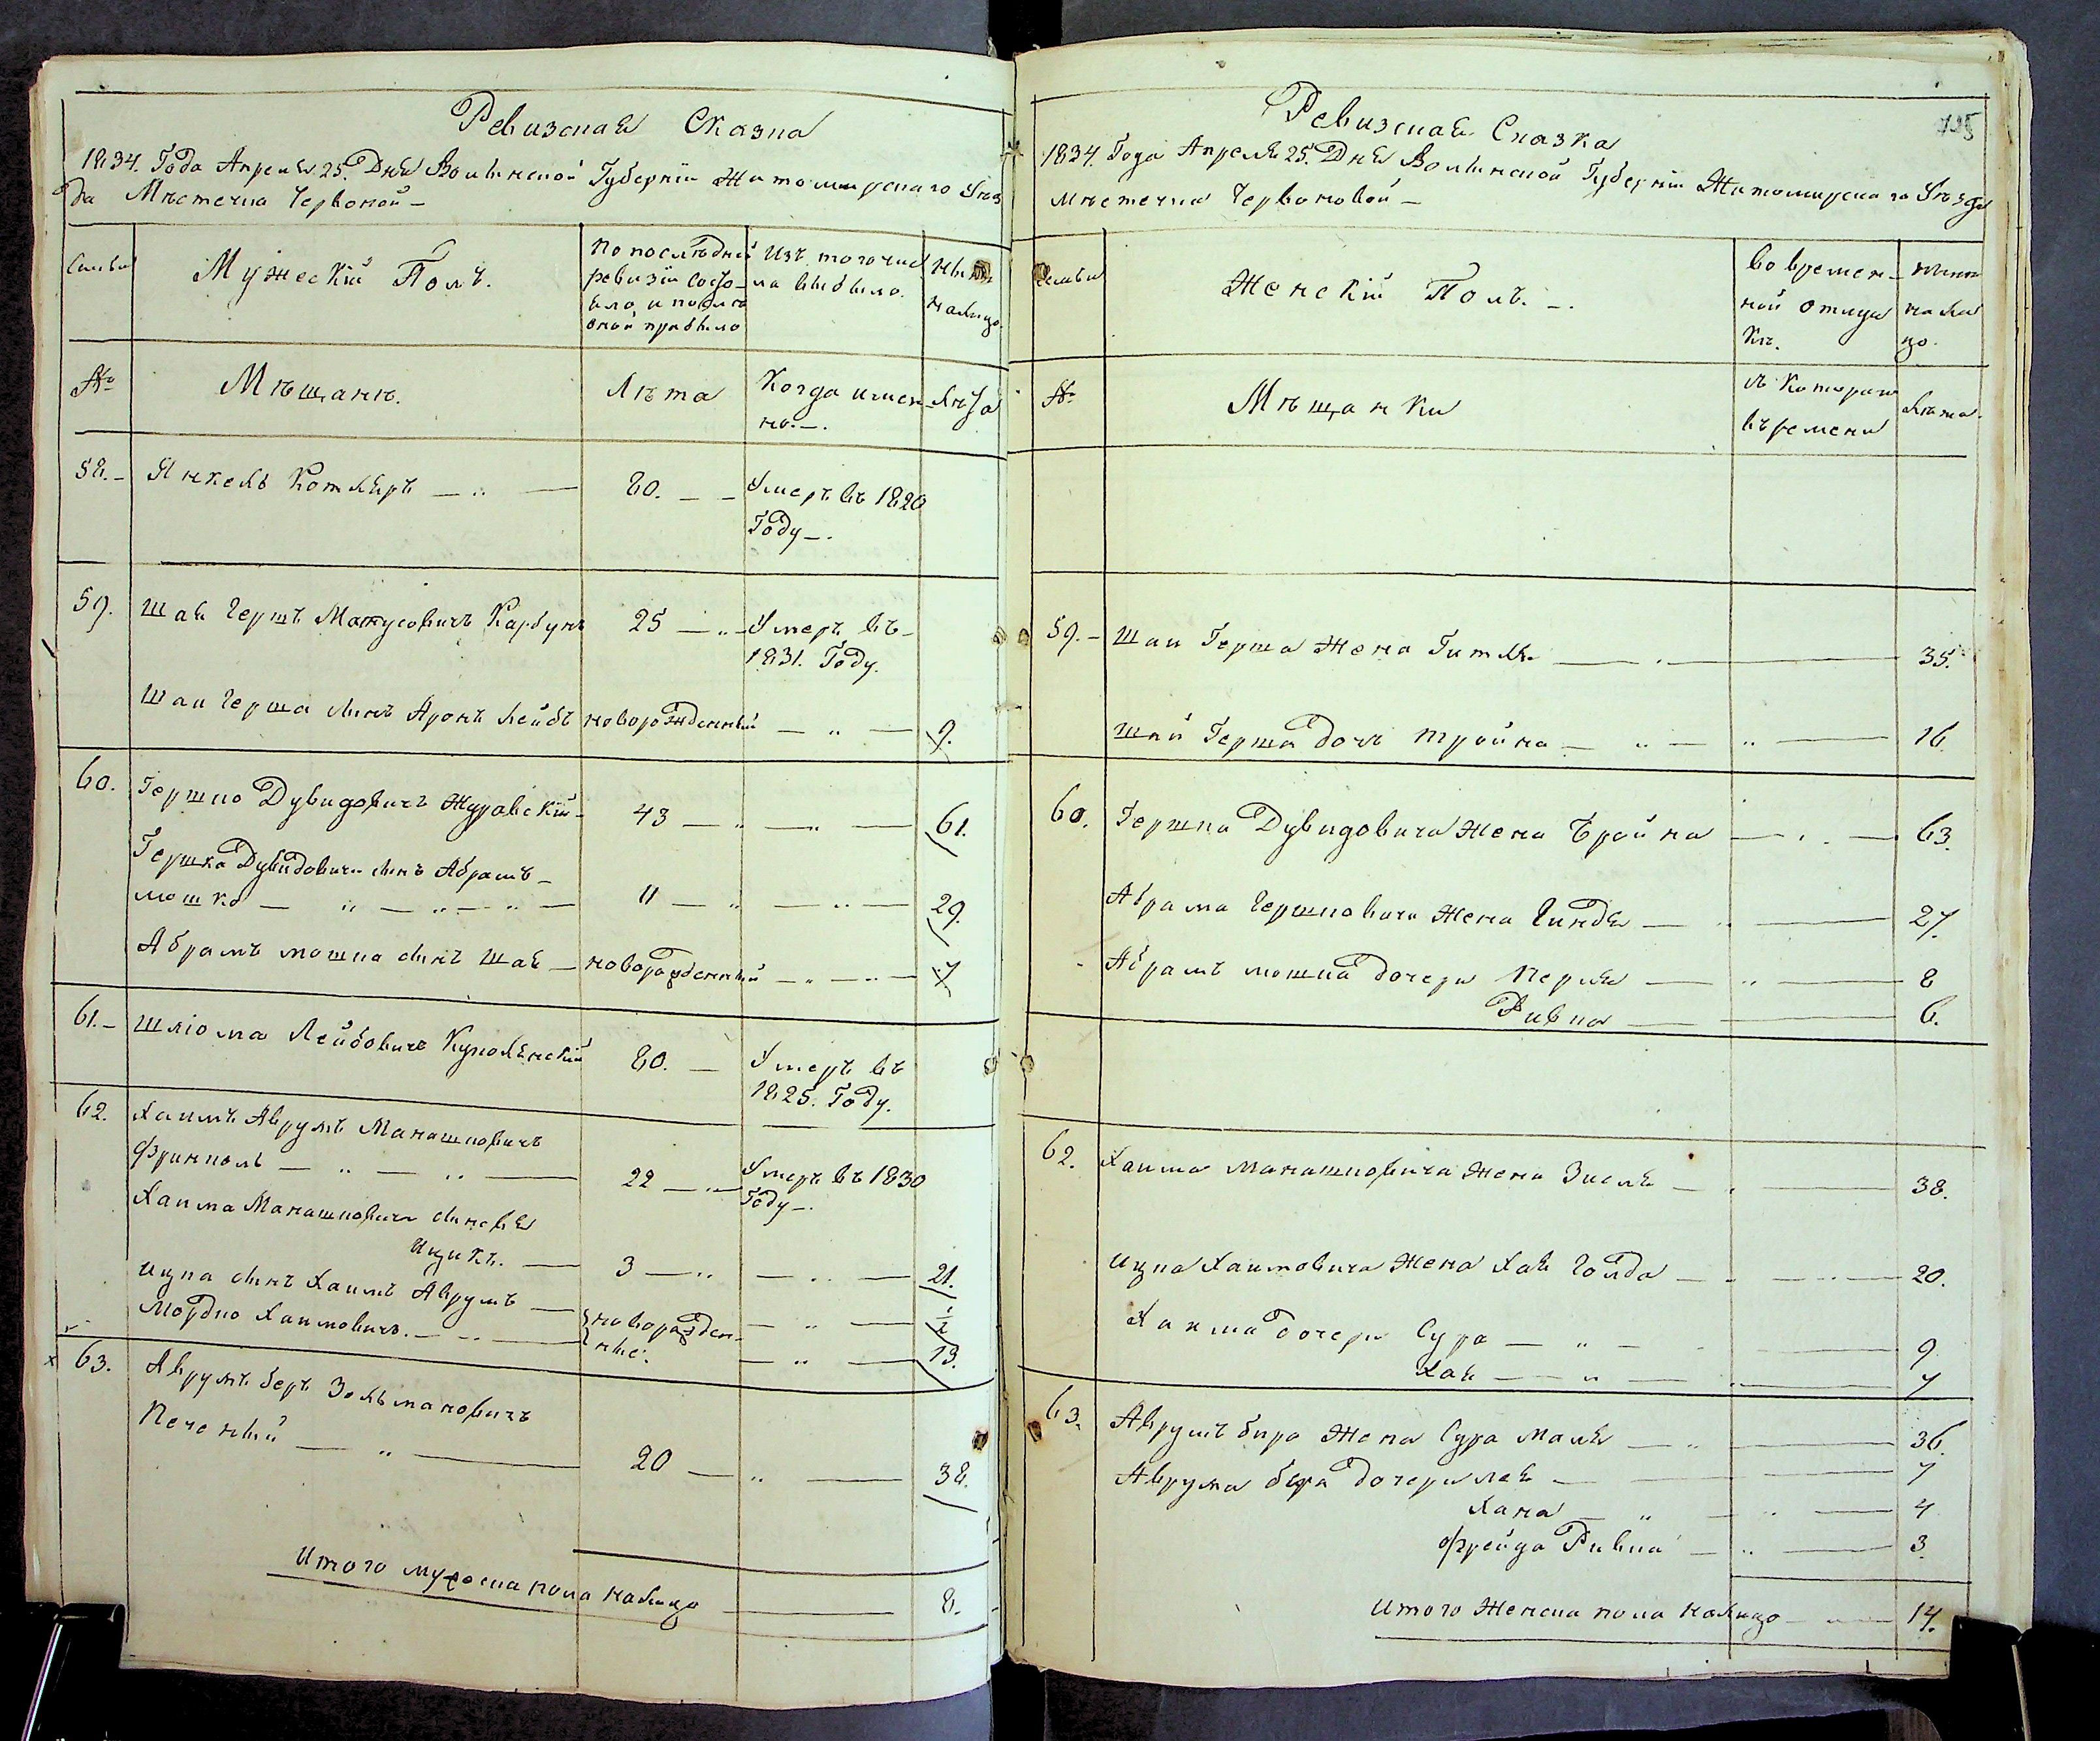 Ревизская Сказка
1834. Года Апреля 25. Дня Волынской Губерніи Житомирскаго Уѣз
да Мѣстечка Червоной —
Семьи
Мужескій Полъ.
По последней ревизіи состояло и после оной прибыло
Изъ того числа выбыло.
Ныне налицо.
№
Мѣщанъ.
Лѣта
Когда именно. —.
Лѣта
58. — Янкель Котляръ — 80. — Умеръ въ 1820
Году —.
59. Шая Гершъ Матусовичъ Карбунъ 25 — Умеръ въ
1831. Году.
Шаи Герша сынъ Аронъ Лейбъ новорожденный — 9.
60. Гершко Дувидовичъ Журавскій — 43 — 61.
Гершка Дувидовича сынъ Абрамъ —
мошко — 11 — 29.
Абрамъ мошка сынъ Шая — новорожденный — 7.
61. — Шліома Лейбовичъ 80. — Умеръ въ
1825. Году.
62. Хаимъ Аврумъ Манашковичъ
22 — Умеръ въ 1830
Году —.
Хаима Манашковича сыновья
Ицикъ. — 3 — 21.
Ицка сынъ Хаимъ Аврумъ — новорожден-
Мордко Хаимовичъ. — ные. — 13.
63. Аврумъ беръ Зельмановичъ
Печеный — 20 — 38.
Итого мужеска пола налицо — 8.
Ревизская Сказка
1834. Года Апреля 25. Дня Волынской Губерніи Житомирскаго Уѣзда
Мѣстечка Червоновой —
Семьи
Женскій Полъ. —.
Во времен-
ной отлуч
кѣ.
ныне
на ли
цо.
№
Мѣщанки
съ котораго
времени
Лѣта.
59. — Шаи Герша жена Гитля — 35.
Шаи Герша дочь Тройна — 16.
60. Гершка Дувидовича жена Бройна — 63.
Абрама Гершковича жена Гиндя — 27.
Абрамъ мошка дочери Перля — 8
Ривка — 6.
62. Хаима Манашковича жена Зисля — 38.
Ицка Хаимовича жена Хая Голда — 20.
Хаима дочери Сура — 9
Хая — 7
63. Аврумъ бера жена Сура Маля — 36.
Аврума бера дочери лея — 7
Хана — 4
Фрейда Ривка — 3.
Итого женска пола налицо — 14.